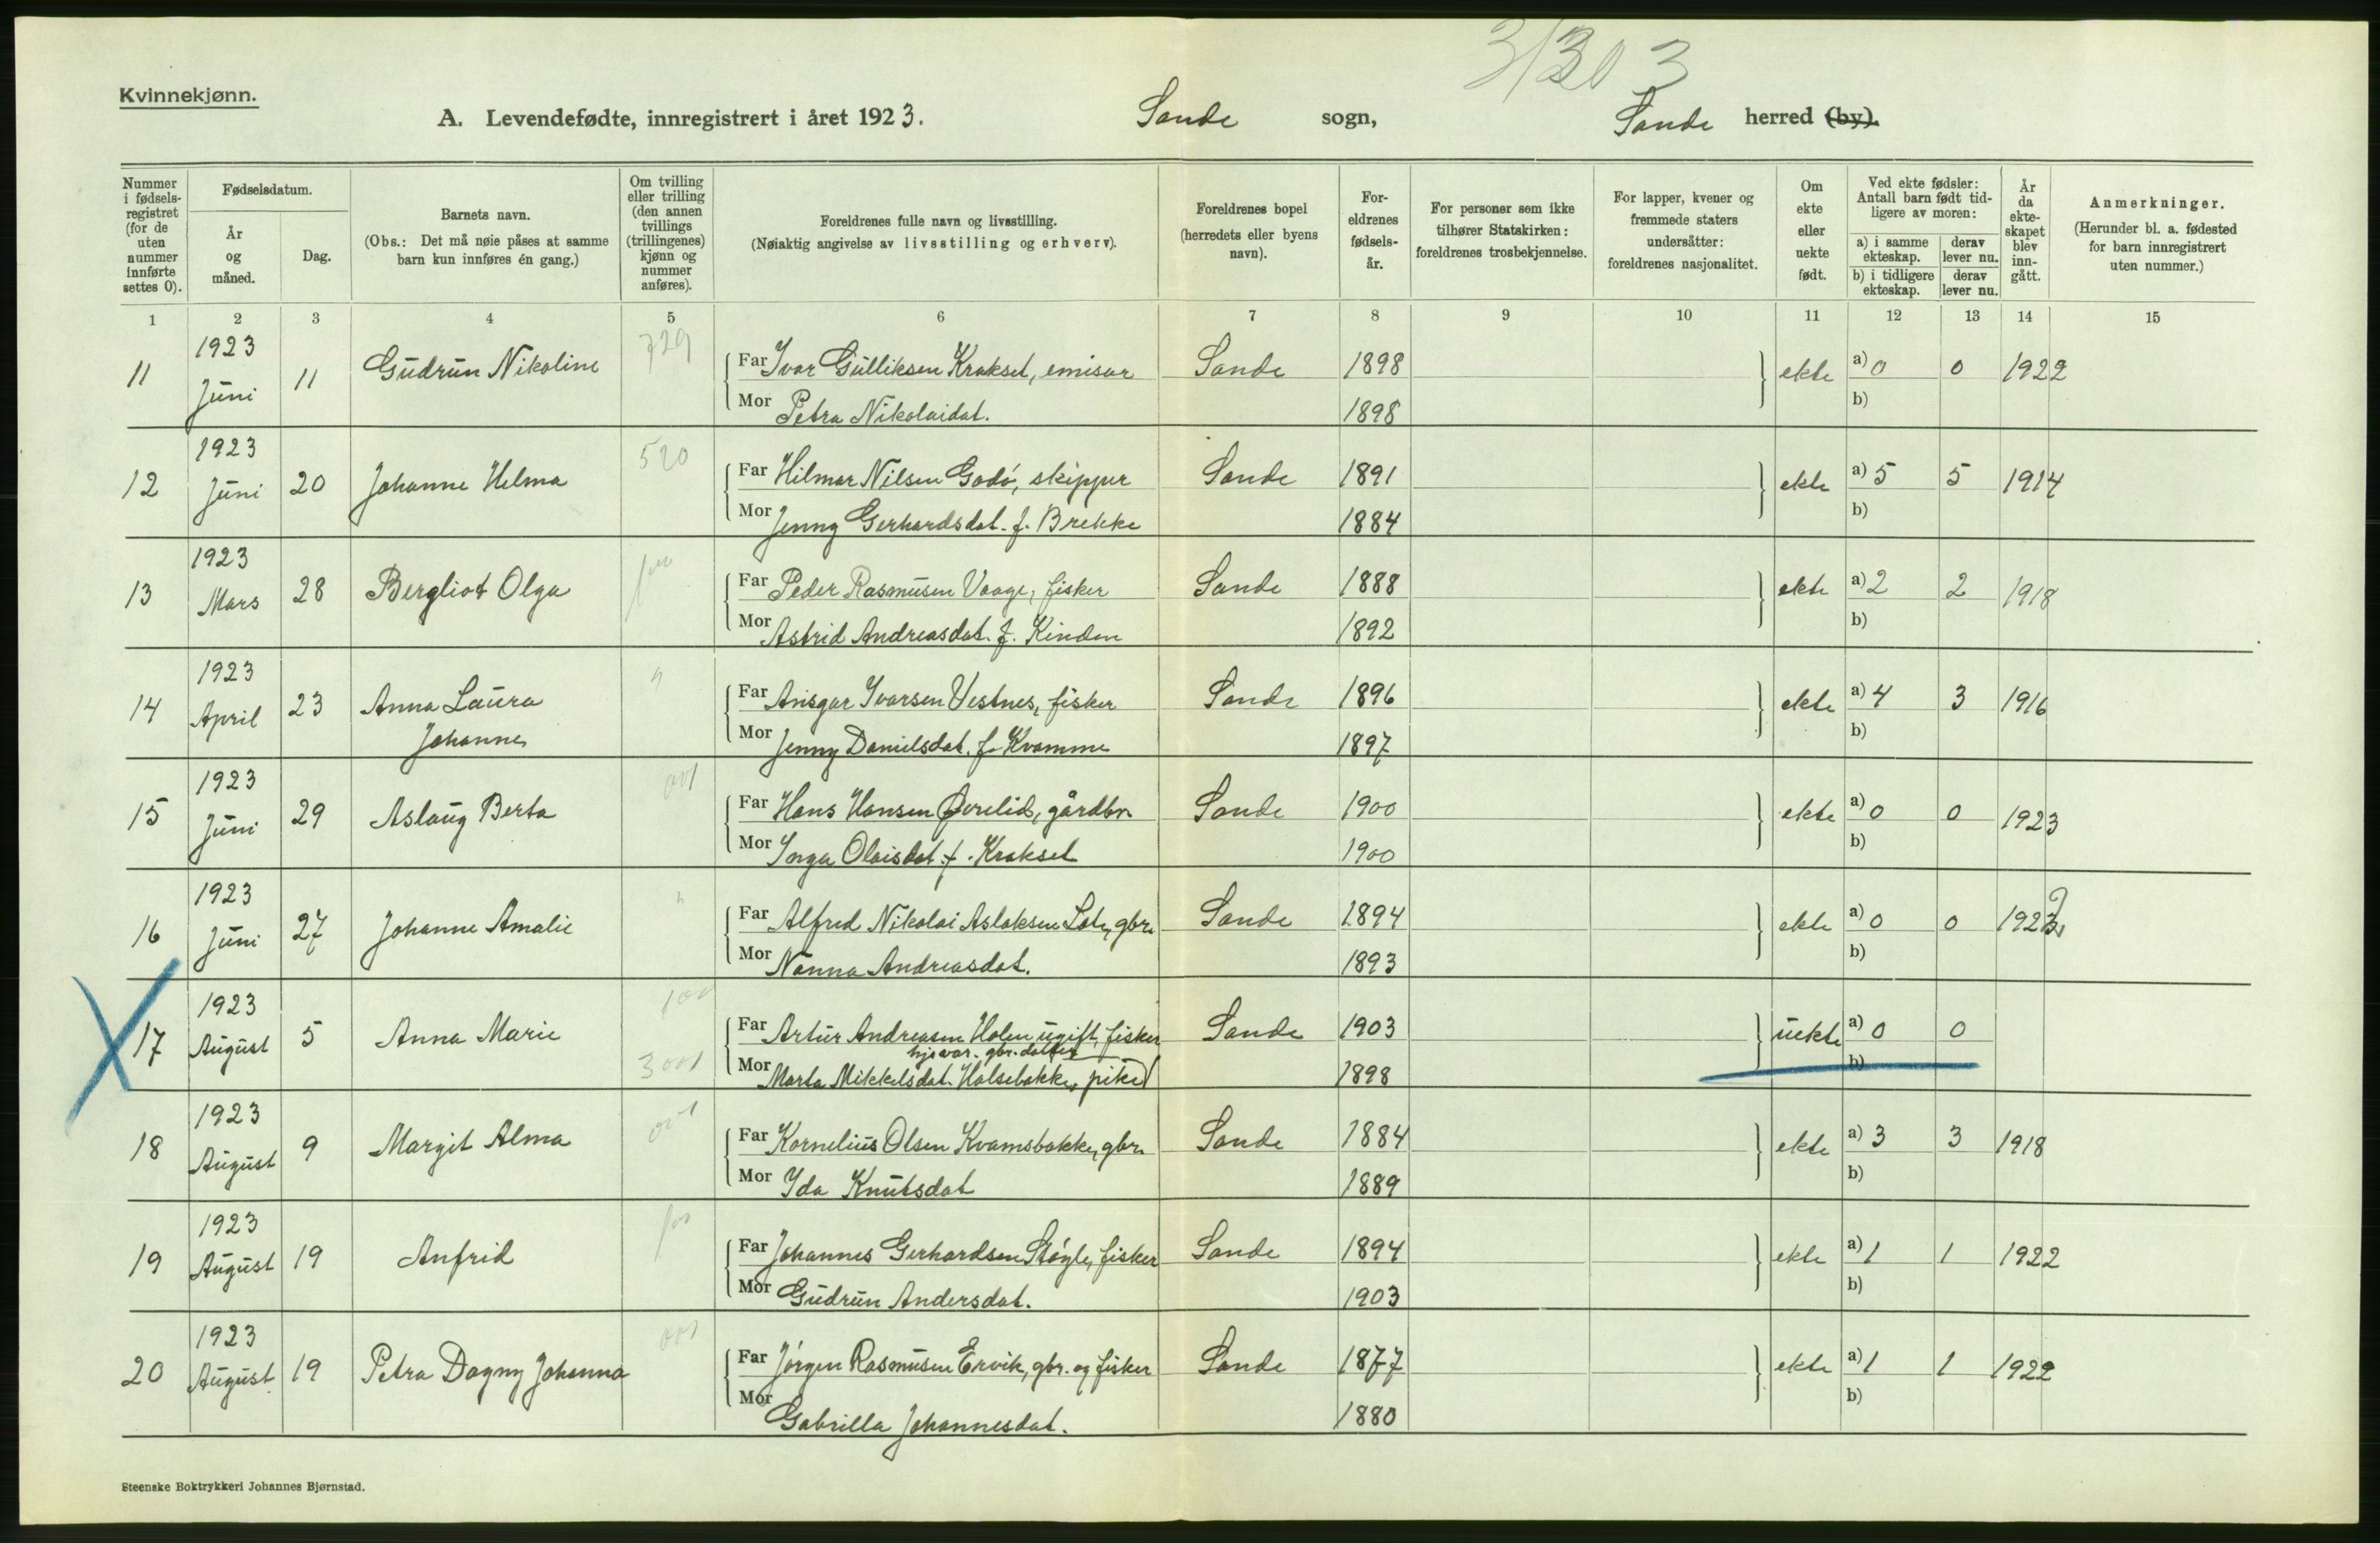 31303
Kvinnekjønn.
A. Levendefødte, innregistrert i året 1923. Sande sogn, Sande herred (by).
Nummer i fødsels-registret (for de uten nummer innførte settes 0).
Fødselsdatum.
År og måned.
Dag.
Barnets navn.
(Obs.: Det må nøie påses at samme barn kun innføres én gang.)
Om tvilling eller trilling (den annen tvillings (trillingenes) kjønn og nummer anføres).
Foreldrenes fulle navn og livsstilling.
(Nøiaktig angivelse av livsstilling og erhverv).
Foreldrenes bopel (herredets eller byens navn).
For-eldrenes fødsels-år.
For personer som ikke tilhører Statskirken: foreldrenes trosbekjennelse.
For lapper, kvener og fremmede staters undersåtter: foreldrenes nasjonalitet.
Om ekte eller uekte født.
Ved ekte fødsler: Antall barn født tid-ligere av moren:
a) i samme ekteskap. derav lever nu.
b) i tidligere ekteskap. derav lever nu.
År da ekte-skapet blev inn-gått.
Anmerkninger.
(Herunder bl. a. fødested for barn innregistrert uten nummer.)
1 2 3 4 5 6 7 8 9 10 11 12 13 14 15
11 1923 Juni 11 Gudrun Nikoline 729 Far Ivar Gulliksen Krakset, emisær Sande 1898 ekte a) 0 0 1922
Mor Petra Nikolaidat. 1898 b)
12 1923 Juni 20 Johanne Helma 520 Far Hilmar Nilsen Godø, skipper Sande 1891 ekte a) 5 5 1914
Mor Jenny Gerhardsdat. f. Brekke 1884 b)
13 1923 Mars 28 Bergliot Olga Far Peder Rasmusen Vaage, fisker Sande 1888 ekte a) 2 2 1918
Mor Astrid Andreasdat. f. Kinden 1892 b)
14 1923 April 23 Anna Laura Johanne Far Ansgar Ivarsen Vestnes, fisker Sande 1896 ekte a) 4 3 1916
Mor Jenny Danielsdat. f. Kvamme 1897 b)
15 1923 Juni 29 Aslaug Berta Far Hans Hansen Øvrelid, gårdbr. Sande 1900 ekte a) 0 0 1923
Mor Inga Olaisdat. f. Krakset 1900 b)
16 1923 Juni 27 Johanne Amalie Far Alfred Nikolai Aslaksen Lote, gbr. Sande 1894 ekte a) 0 0 1922
Mor Nanna Andreasdat. 1893 b)
17 1923 August 5 Anna Marie Far Artur Andreasen Holen ugift, fisker Sande 1903 uekte a) 0 0
hjevær. gbr. datter
Mor Marta Mikkelsdat. Halsebakke, pike 1898 b)
18 1923 August 9 Margit Alma Far Kornelius Olsen Kvamsbakke, gbr. Sande 1884 ekte a) 3 3 1918
Mor Ida Knutsdat 1889 b)
19 1923 August 19 Anfrid Far Johannes Gerhardsen Støyle, fisker Sande 1894 ekte a) 1 1 1922
Mor Gudrun Andersdat. 1903 b)
20 1923 August 19 Petra Dagny Johanna Far Jørgen Rasmusen Ervik, gbr. og fisker Sande 1877 ekte a) 1 1 1922
Mor Gabrilla Johannesdat. 1880 b)
Steenske Boktrykkeri Johannes Bjørnstad.